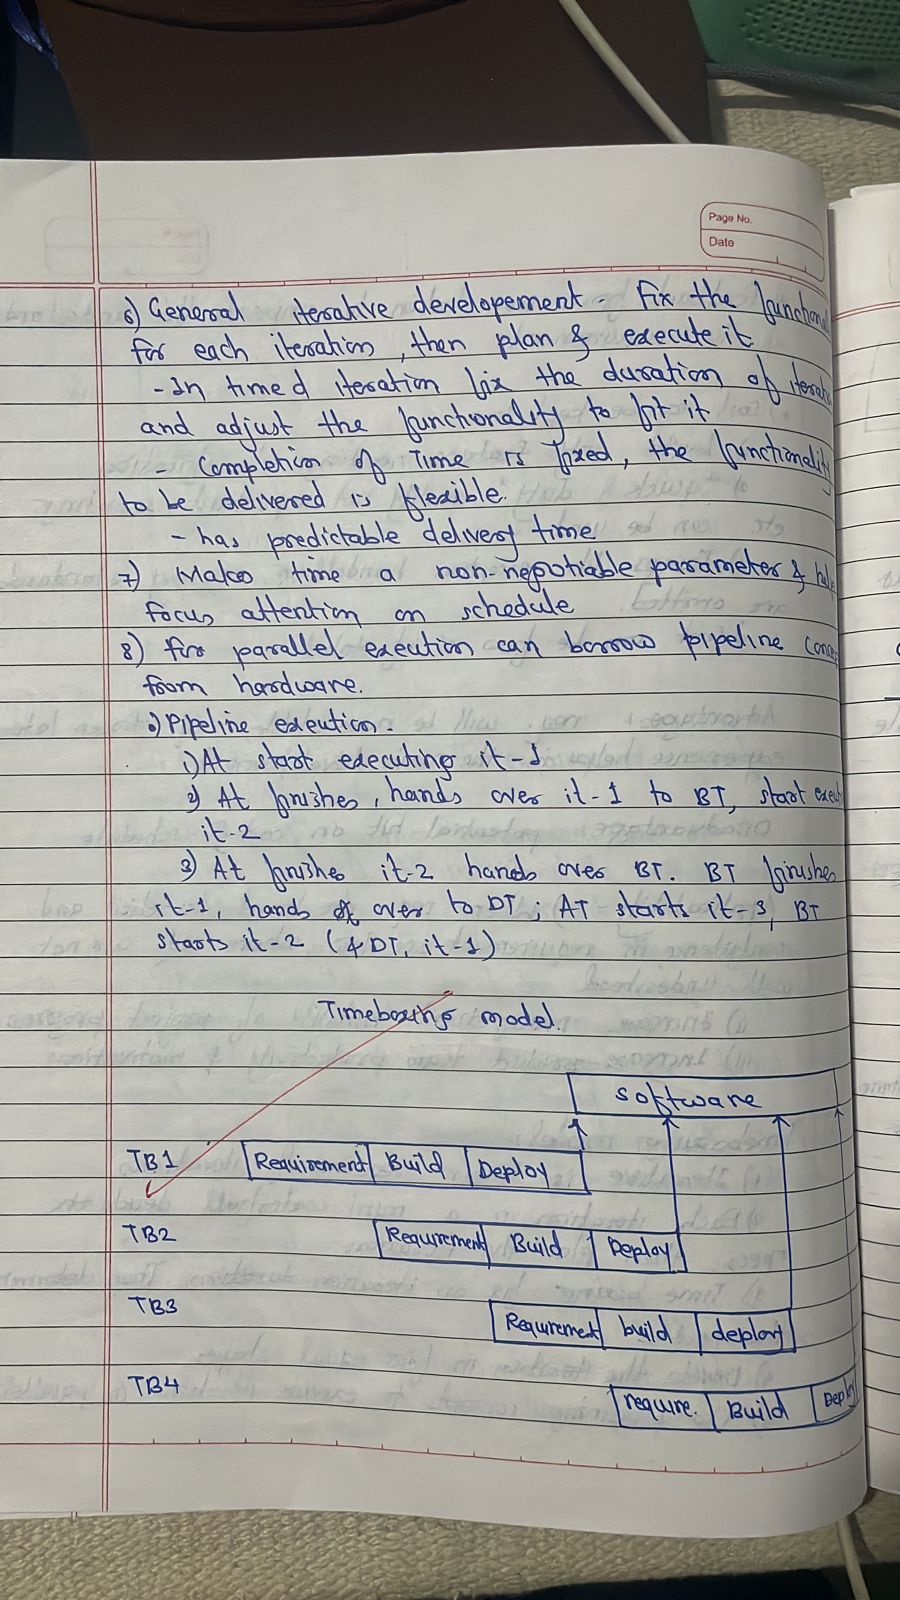 Page No.
Date
6) General iterative developement - Fix the
for each iteration, then plan & execute it
- In timed iteration fix the duration of
and adjust the functionality to fit it
- Completion of Time is fixed, the functionality
to be delivered is flexible.
- has predictable delivery time
7) Makes time a non-negotiable parameter &
focus attention on schedule
8) for parallel exeution can borrow pipeline
from hardware.
Pipeline exeution -
1) At start executing it-1
2) At finishes, hands over it-1 to BT, start
it-2
3) At finishes it-2 hands over BT. BT finishes
it-1, hands over to DT; AT starts it-3, BT
starts it-2 (& DT, it-1)
Timeboxing model.
software
TB1 Requirement Build Deploy
TB2 Requirement Build Deploy
TB3 Requirement build deploy
TB4 require. Build Deploy